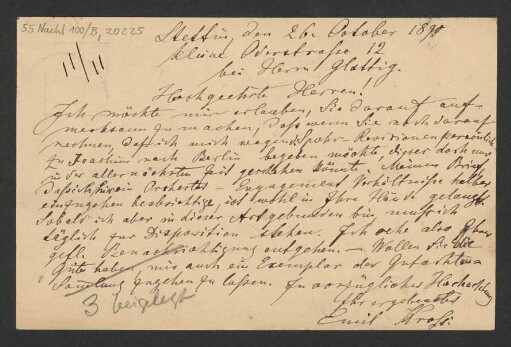 55 Nachl 100/B, 20225
Stettin, den 26. October 1890
Kleine Oderstrasse 12
bei Herrn Glattig.
11/11
Hochgeehrte Herren!
Ich möchte mir erlauben, Sie darauf auf-
merksam zu machen, dass wenn Sie noch darauf
rechnen, dass ich mich wegen Spohr-Revisionen persönlich
zu Joachim nach Berlin begeben möchte, dieser doch nur
in der allernächsten Zeit geschehen könnte. Meinen Brief,
dass ich hier ein Orchester-Engagement Verhältnisse halber
einzugehen beabsichtige, ist wohl in Ihre Hände gelangt.
Sobald ich aber in dieser Art gebunden bin, muss ich
täglich zur Disposition stehen. Ich sehe also Ihrer
gefl. Benachrichtigung entgegen. – Wollen Sie die
Güte haben, mir auch ein Exemplar der Gutachten-
Sammlung zugehen zu lassen. In vorzüglicher Hochachtung
Ihr ergebenster
Emil Kross.
3 beigelegt